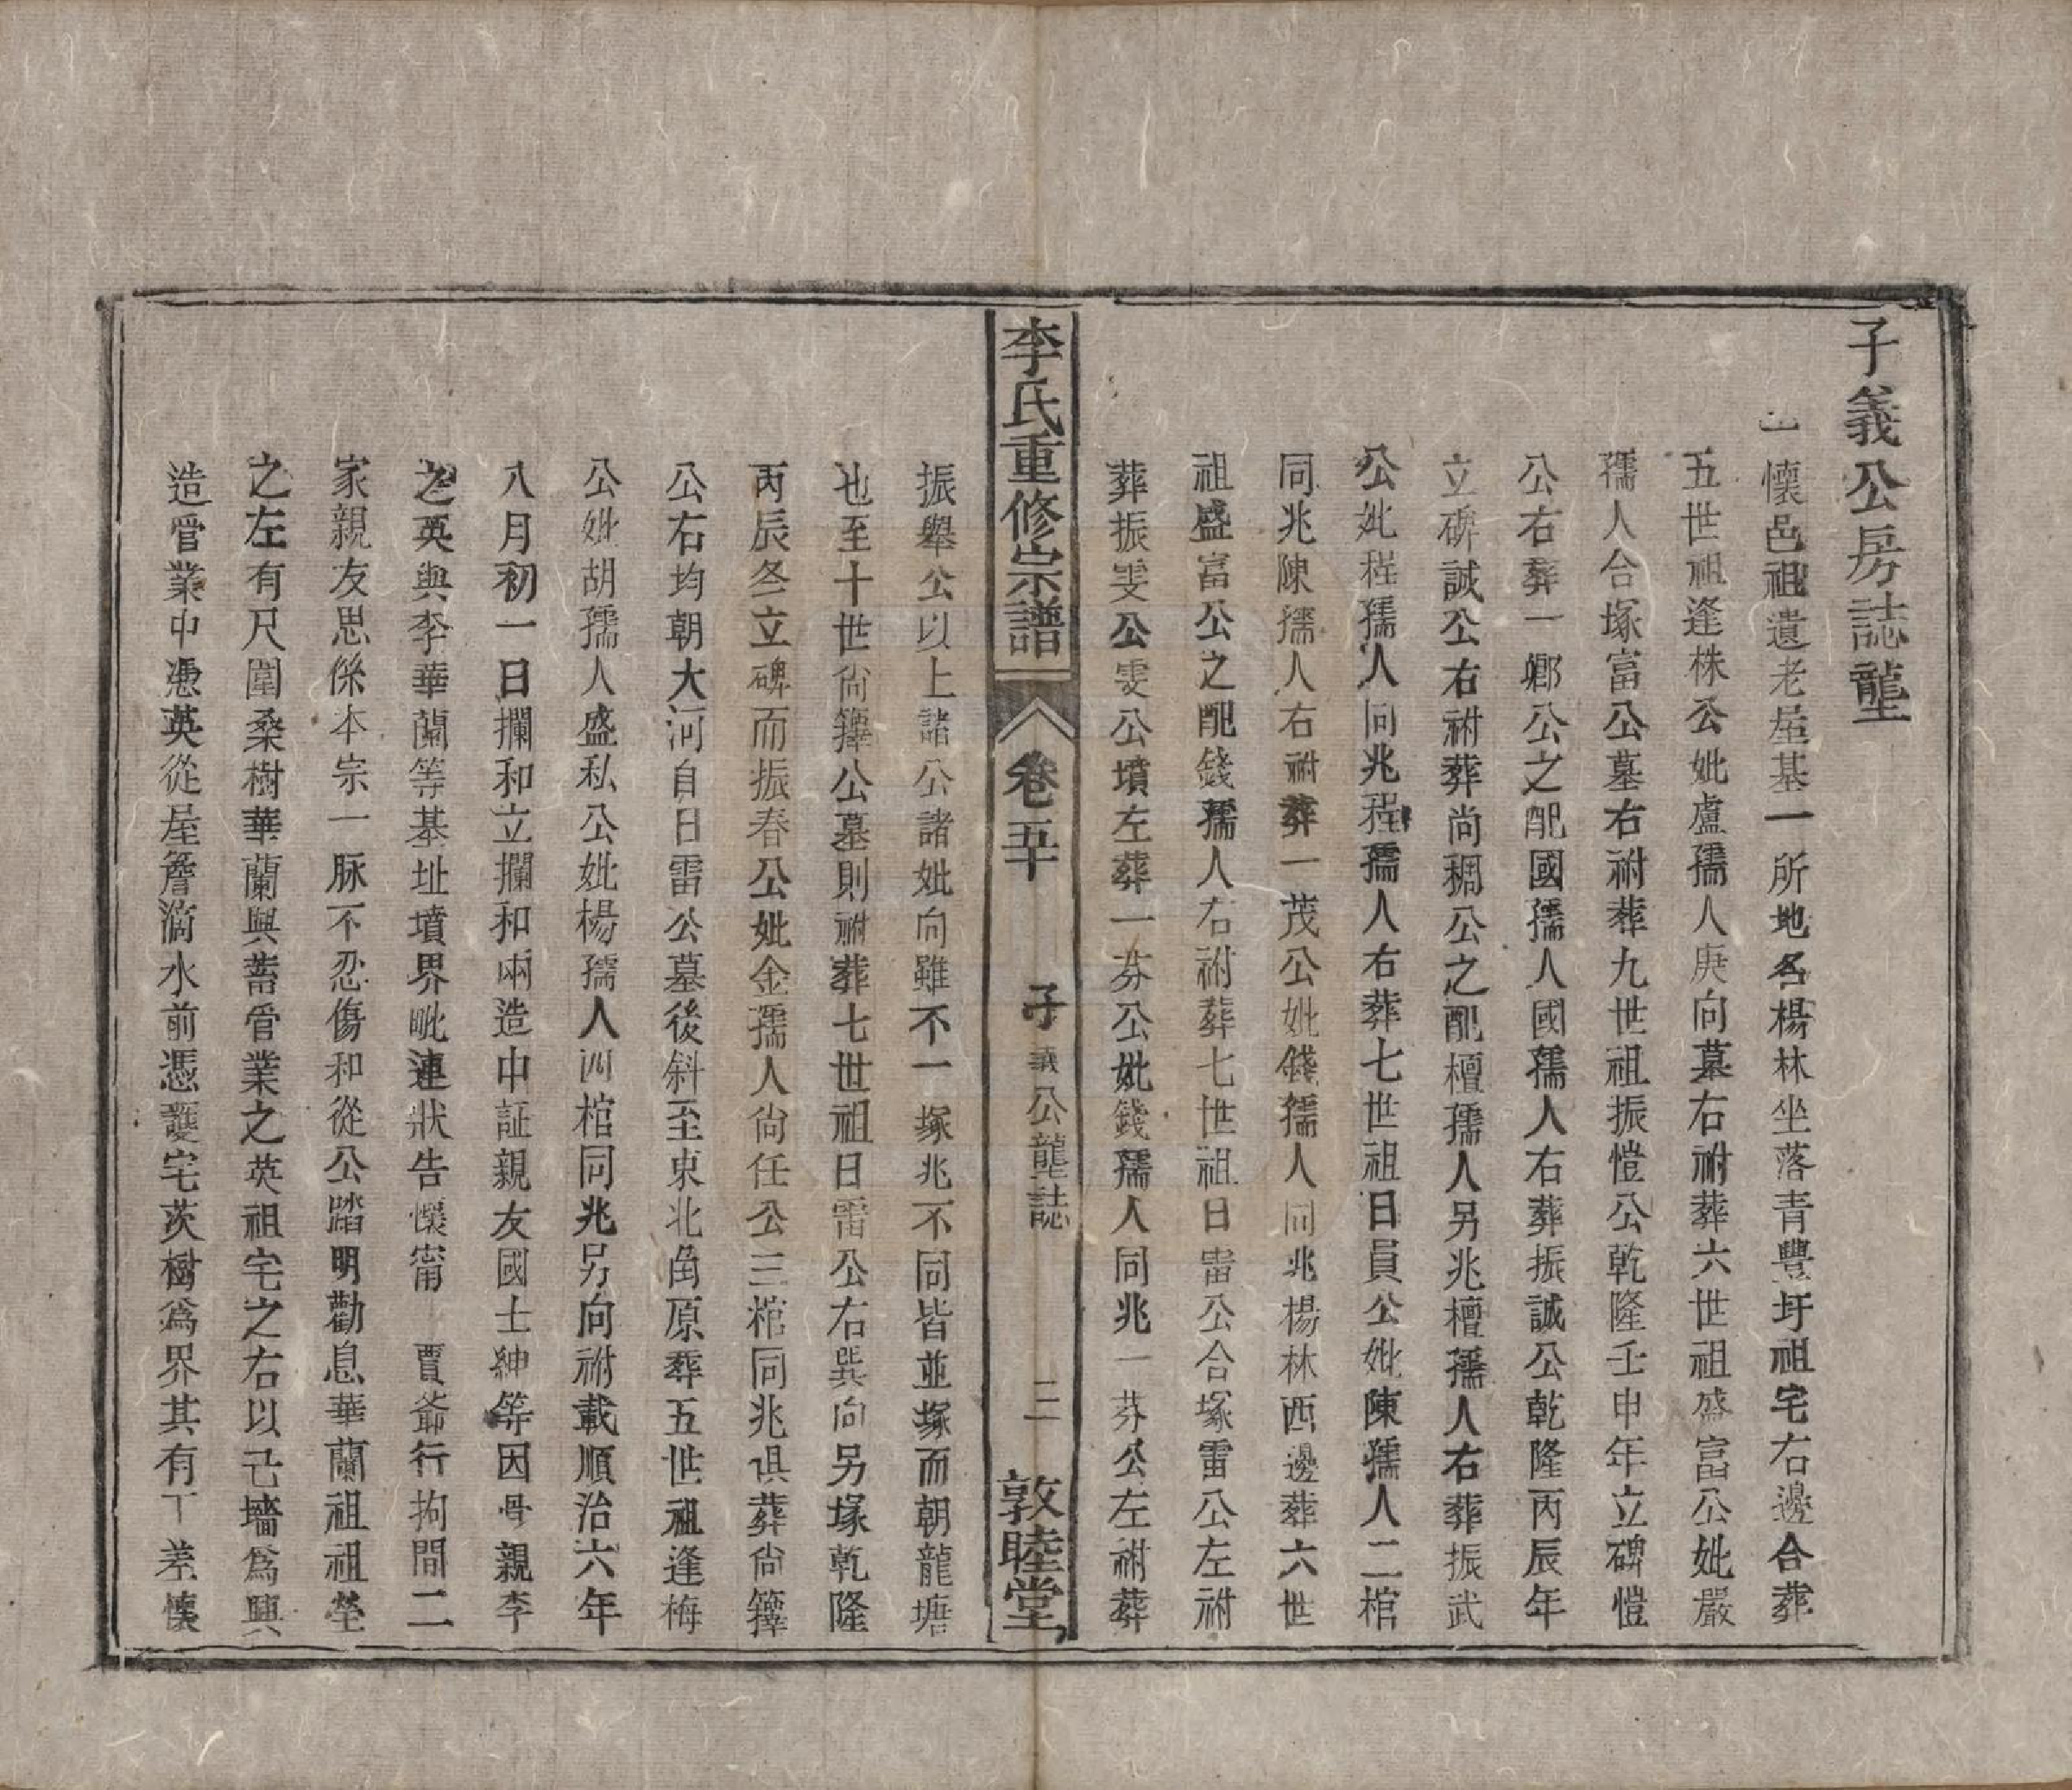 子義公房誌壠
一懷邑祖遺老屋基一所地名楊林坐落青豐圩祖宅右邊合葬
五世祖逢株公妣盧孺人庚向墓右祔葬六世祖盛富公妣嚴
孺人合塚富公墓右祔葬九世祖振愷公乾隆壬申年立碑愷
公右葬一鄉公之配國孺人國孺人右葬振誠公乾隆丙辰年
立碑誠公右祔葬尚稠公之配檀孺人另兆檀孺人右葬振武
公妣程孺人同兆程孺人右葬七世祖日員公妣陳孺人二棺
同兆陳孺人右祔葬一茂公妣錢孺人同兆楊林西邊葬六世
祖盛富公之配錢孺人右祔葬七世祖日雷公合塚雷公左祔
葬振雯公雯公墳左葬一芬公妣錢孺人同兆一芬公左祔葬
李氏重修宗譜
卷五十
子義公壠誌
二
敦睦堂
振舉公以上諸公諸妣向雖不一塚兆不同皆並塚而朝龍塘
也至十世尙籜公墓則祔葬七世祖日雷公右巽向另塚乾隆
丙辰冬立碑而振春公妣金孺人尙任公三棺同兆俱葬尙籜
公右均朝大河自日雷公墓後斜至東北角原葬五世祖逢梅
公妣胡孺人盛私公妣楊孺人四棺同兆另向祔載順治六年
八月初一日攔和立攔和兩造中証親友國士紳等因骨親李
之英與李華蘭等基址墳界毗連狀告懷甯　賈爺行拘間二
家親友思係本宗一脉不忍傷和從公踏明勸息華蘭祖祖塋
之左有尺圍桑樹華蘭興蓄管業之英祖宅之右以己墻爲興
造管業中憑英從屋簷滴水前憑護宅茨樹爲界其有丁差懷